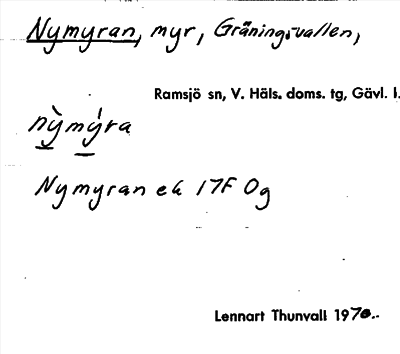 Nymyran, myr, Gräningsvallen,
Ramsjö sn, V. Häls. doms. tg, Gävl. l.
nỳmýra
Nymyran ek 17F 0g
Lennart Thunvall 1970.